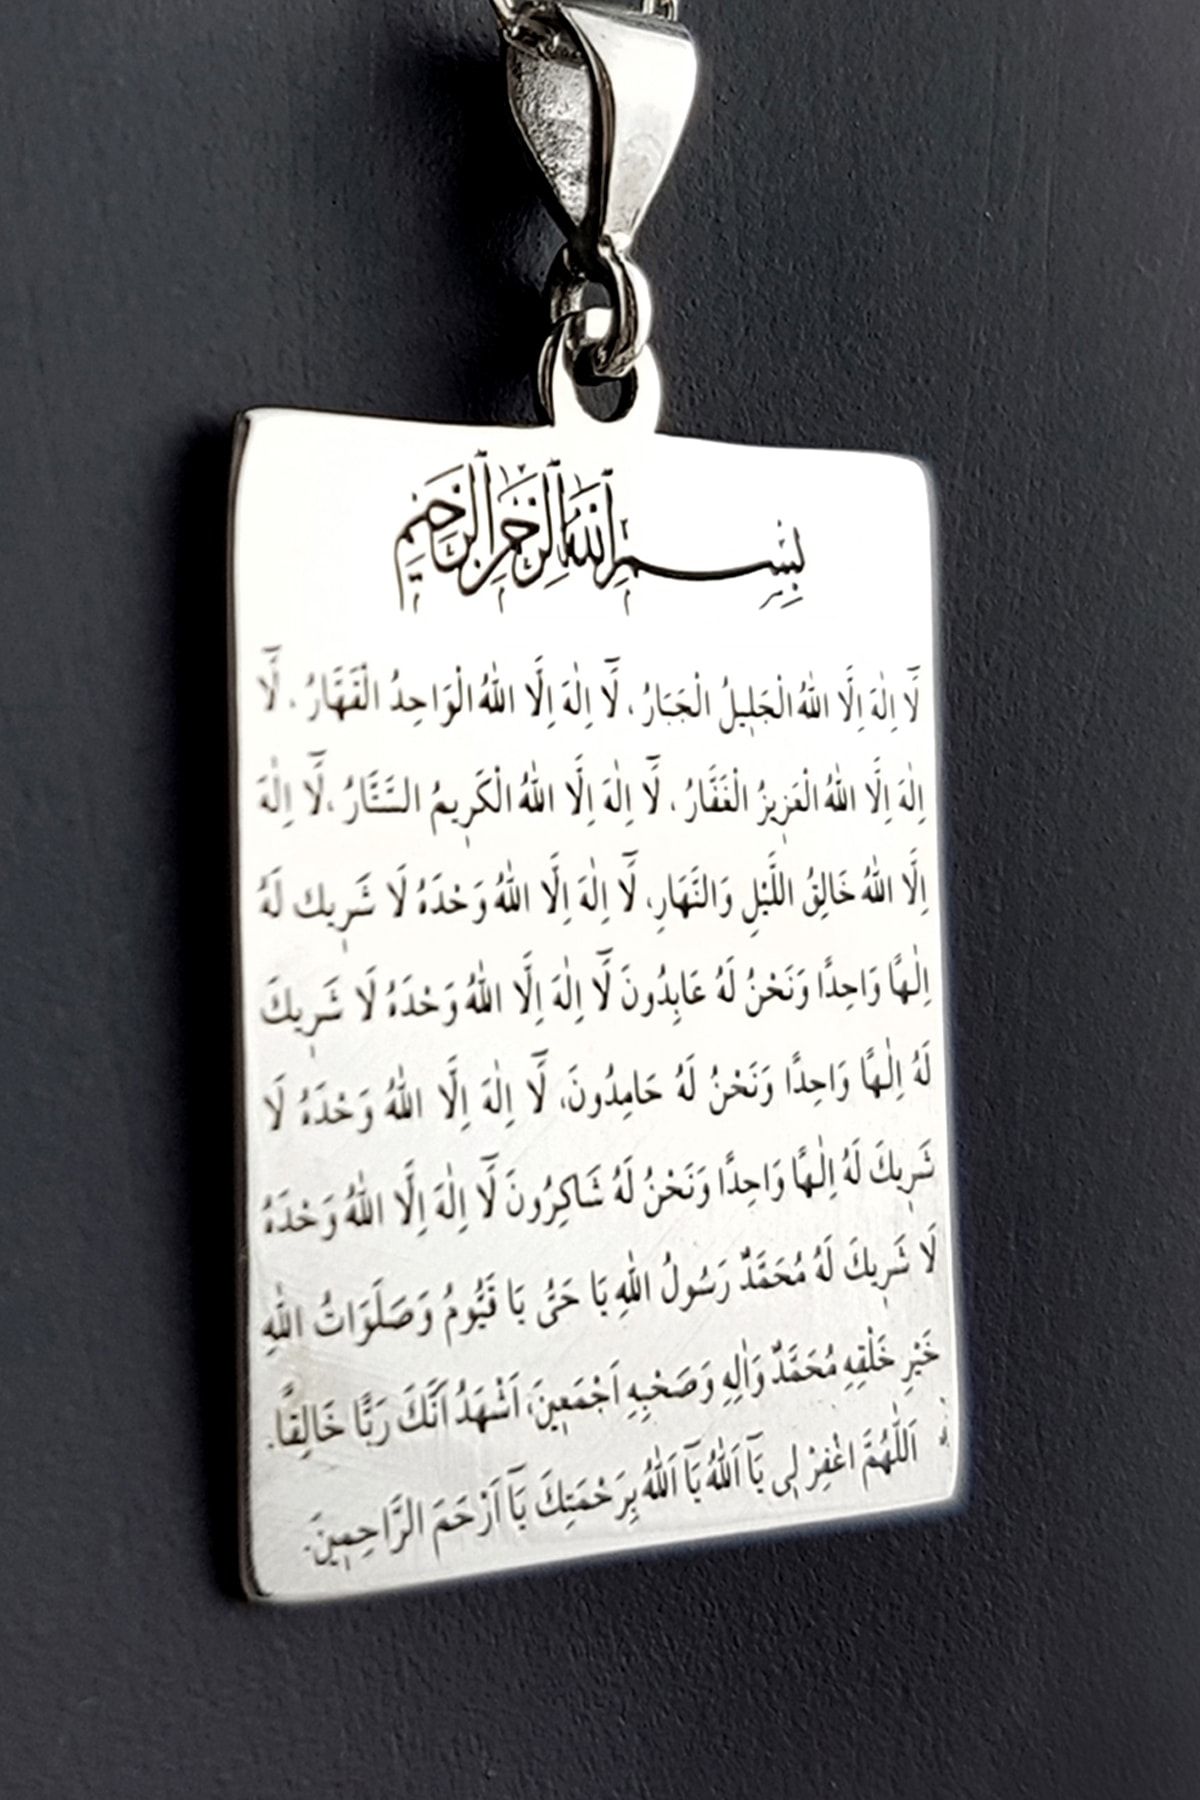 بِسْمِ اللهِ الرَّحْمٰنِ الرَّحِيمِ
لَٓا اِلٰهَ اِلَّا اللهُ الْجَلِيلُ الْجَبَّارُ، لَٓا اِلٰهَ اِلَّا اللهُ الْوَاحِدُ الْقَهَّارُ، لَٓا
اِلٰهَ اِلَّا اللهُ الْعَزِيزُ الْغَفَّارُ، لَٓا اِلٰهَ اِلَّا اللهُ الْكَرِيمُ السَّتَّارُ، لَٓا اِلٰهَ
اِلَّا اللهُ خَالِقُ اللَّيْلِ وَالنَّهَارِ، لَٓا اِلٰهَ اِلَّا اللهُ وَحْدَهُ لَا شَرِيك لَهُ
اِلٰهًا وَاحِدًا وَنَحْنُ لَهُ عَابِدُونَ لَٓا اِلٰهَ اِلَّا اللهُ وَحْدَهُ لَا شَرِيكَ
لَهُ اِلٰهًا وَاحِدًا وَنَحْنُ لَهُ حَامِدُونَ، لَٓا اِلٰهَ اِلَّا اللهُ وَحْدَهُ لَا
شَرِيكَ لَهُ اِلٰهًا وَاحِدًا وَنَحْنُ لَهُ شَاكِرُونَ لَٓا اِلٰهَ اِلَّا اللهُ وَحْدَهُ
لَا شَرِيكَ لَهُ مُحَمَّدٌ رَسُولُ اللهِ يَا حَىُّ يَا قَيُّومُ وَصَلَوَاتُ اللهِ
خَيْرِ خَلْقِهِ مُحَمَّدٌ وَاٰلِهِ وَصَحْبِهِ اَجْمَعِينَ، اَشْهَدُ اَنَّكَ رَبًّا خَالِقًا.
اَللّٰهُمَّ اغْفِرْ لِى يَٓا اَللهُ يَٓا اَللهُ بِرَحْمَتِكَ يَٓا اَرْحَمَ الرَّاحِمِينَ.